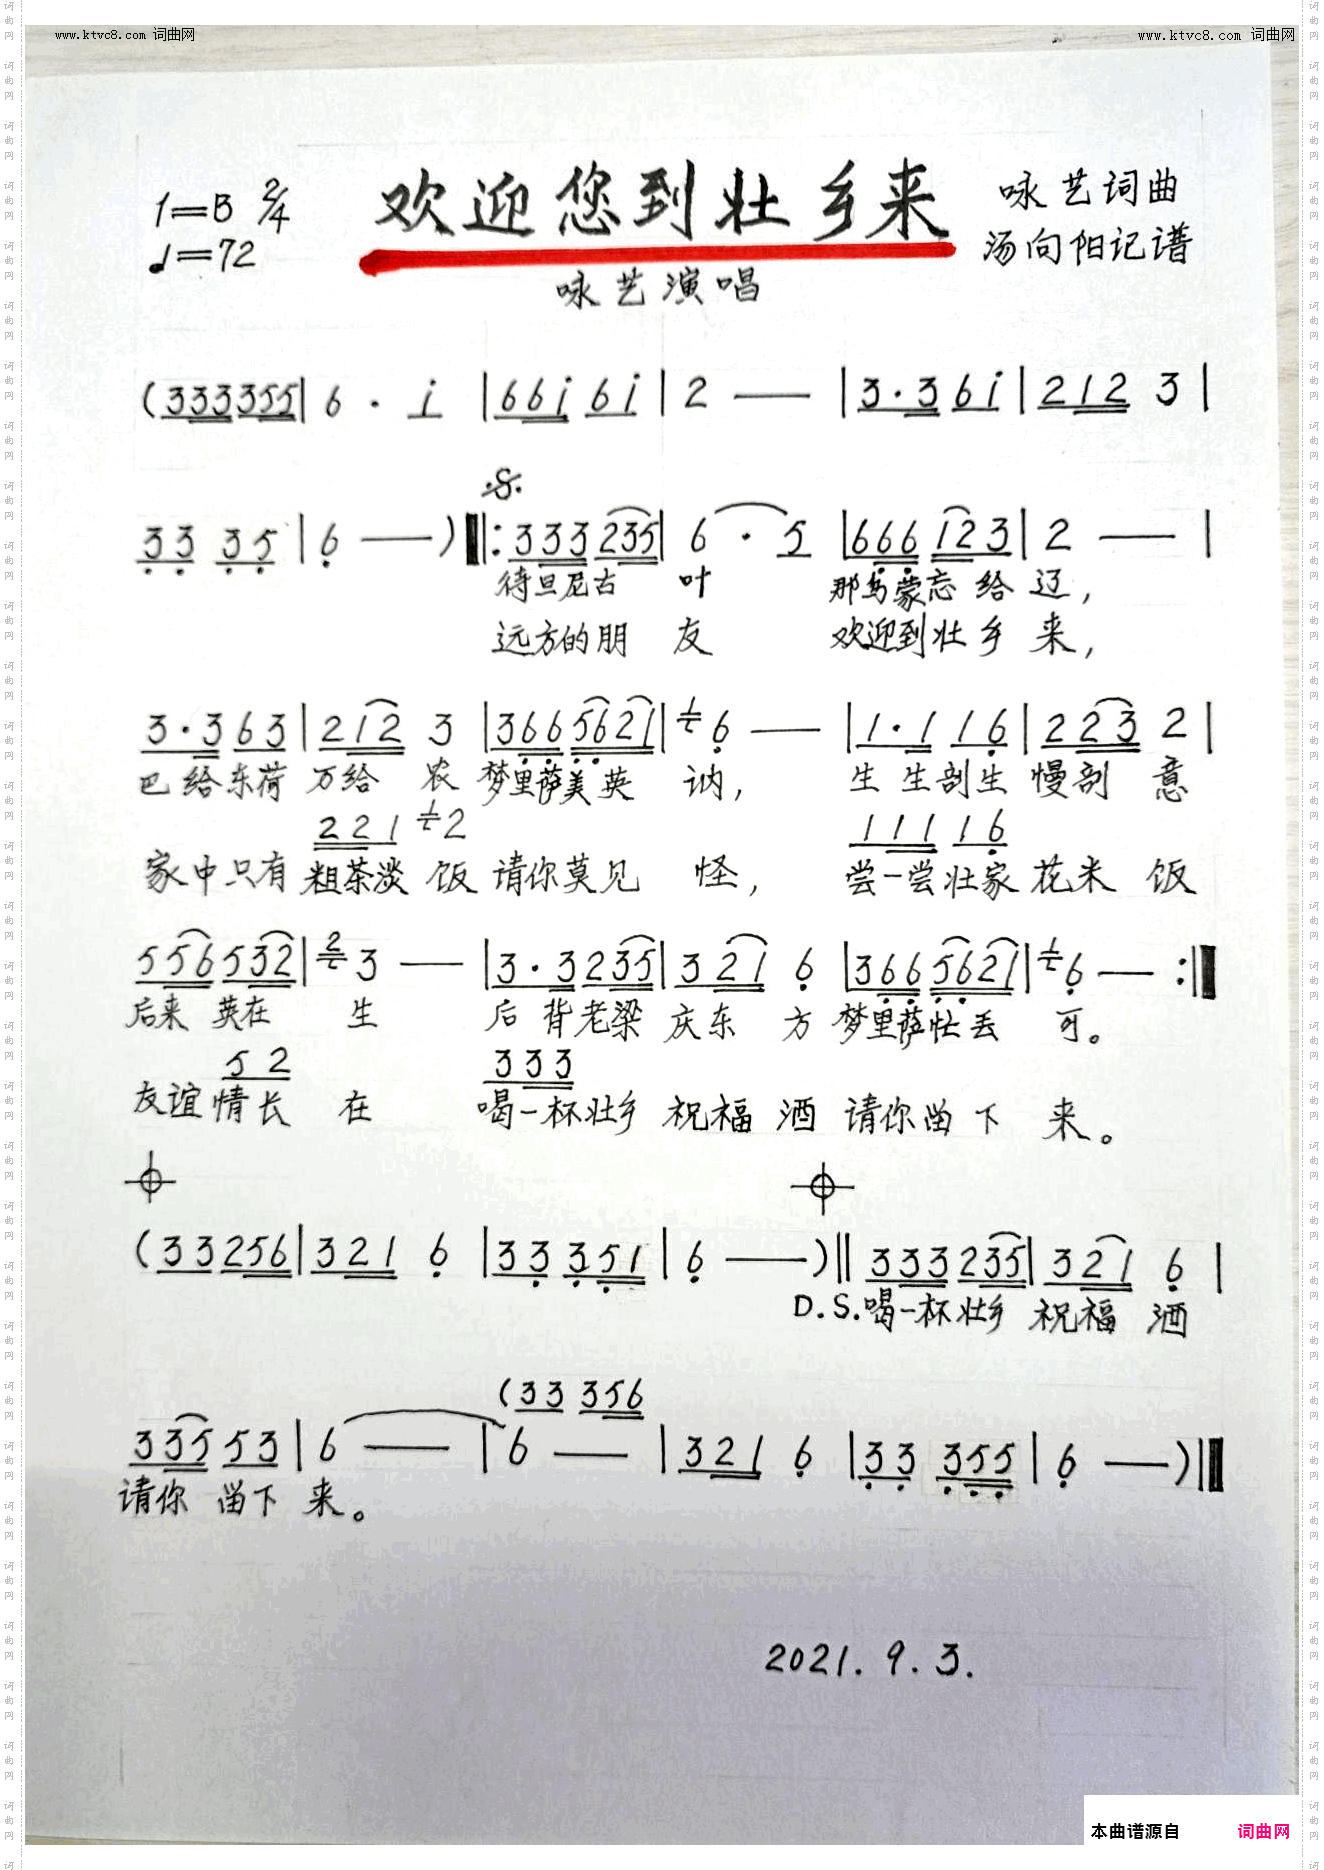 www.ktvc8.com 词曲网
www.ktvc8.com 词曲网
1=B 2/4
♩=72
欢迎您到壮乡来
咏艺词曲
汤向阳记谱
咏艺演唱
(333355|6·i|66i6i|2—|3·36i|2123|
3335|6—)‖:333235|6·5|666123|2—|
待旦尼古 叶 那马蒙忘给辽,
远方的朋 友 欢迎到壮乡来,
3·363|2123|3665621|6—|1·116|2232|
巴给东荷 万给 农 梦里萨美英 讷, 生生剖生 慢剖 意
221 2 111 16
家中只有 粗茶淡 饭 请你莫见 怪, 尝一尝壮家 花米 饭
556532|3—|3·3235|3216|3665621|6—:‖
后来 英在 生 后背老梁 庆东 方 梦里萨忙丢 可。
52 333
友谊情长 在 喝一杯壮乡 祝福 酒 请你留下 来。
(33256|3216|33351|6—)‖333235|3216|
D.S.喝一杯壮乡 祝福 酒
(33 356
33553|6—|6—|3216|33355|6—)‖
请你 留下 来。
2021.9.3.
本曲谱源自 词曲网